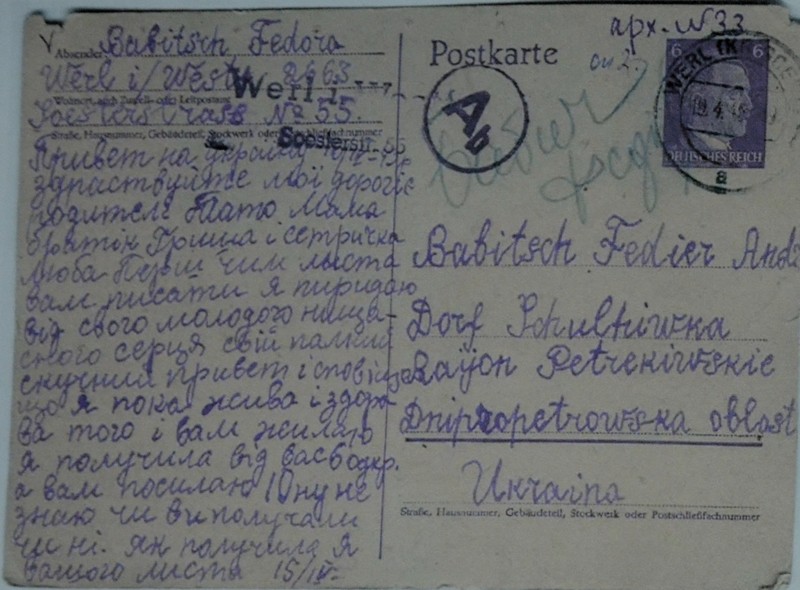 Absender: Babitsch Fedora
Werl i/Westf 2463
Werl i
Wohnort, auch Zustell- oder Leitpostamt
Soesterstrass Nr 55.
Straße, Hausnummer, Gebäudeteil, Stockwerk oder Postschließfachnummer
Soesterstr. 55
Привет на україну
здраствуйте мої дорогіє
родителі Тато Мама
братік Гриша і сетричка
Люба Перш чим листа
вам писати я пиридаю
від свого молодого нища-
сного серця свій палкий
скучний привет і сповіщ
що я пока жива і здоро
ва того і вам жилаю
я получила від вас 6 откр.
а вам посилаю 10 ну не
знаю чи ви получали
чи ні. Як получила я
вашого листа 15/IV.
арх. N 33
оп 2.
Postkarte
Ab
WERL (KR SOEST)
4.4
a
6 6
DEUTSCHES REICH
Babitsch Fedier And
Dorf Schulhiwka
Raijon Petrekiwskie
Dnipropetrowska oblast
Ukraina
Straße, Hausnummer, Gebäudeteil, Stockwerk oder Postschließfachnummer